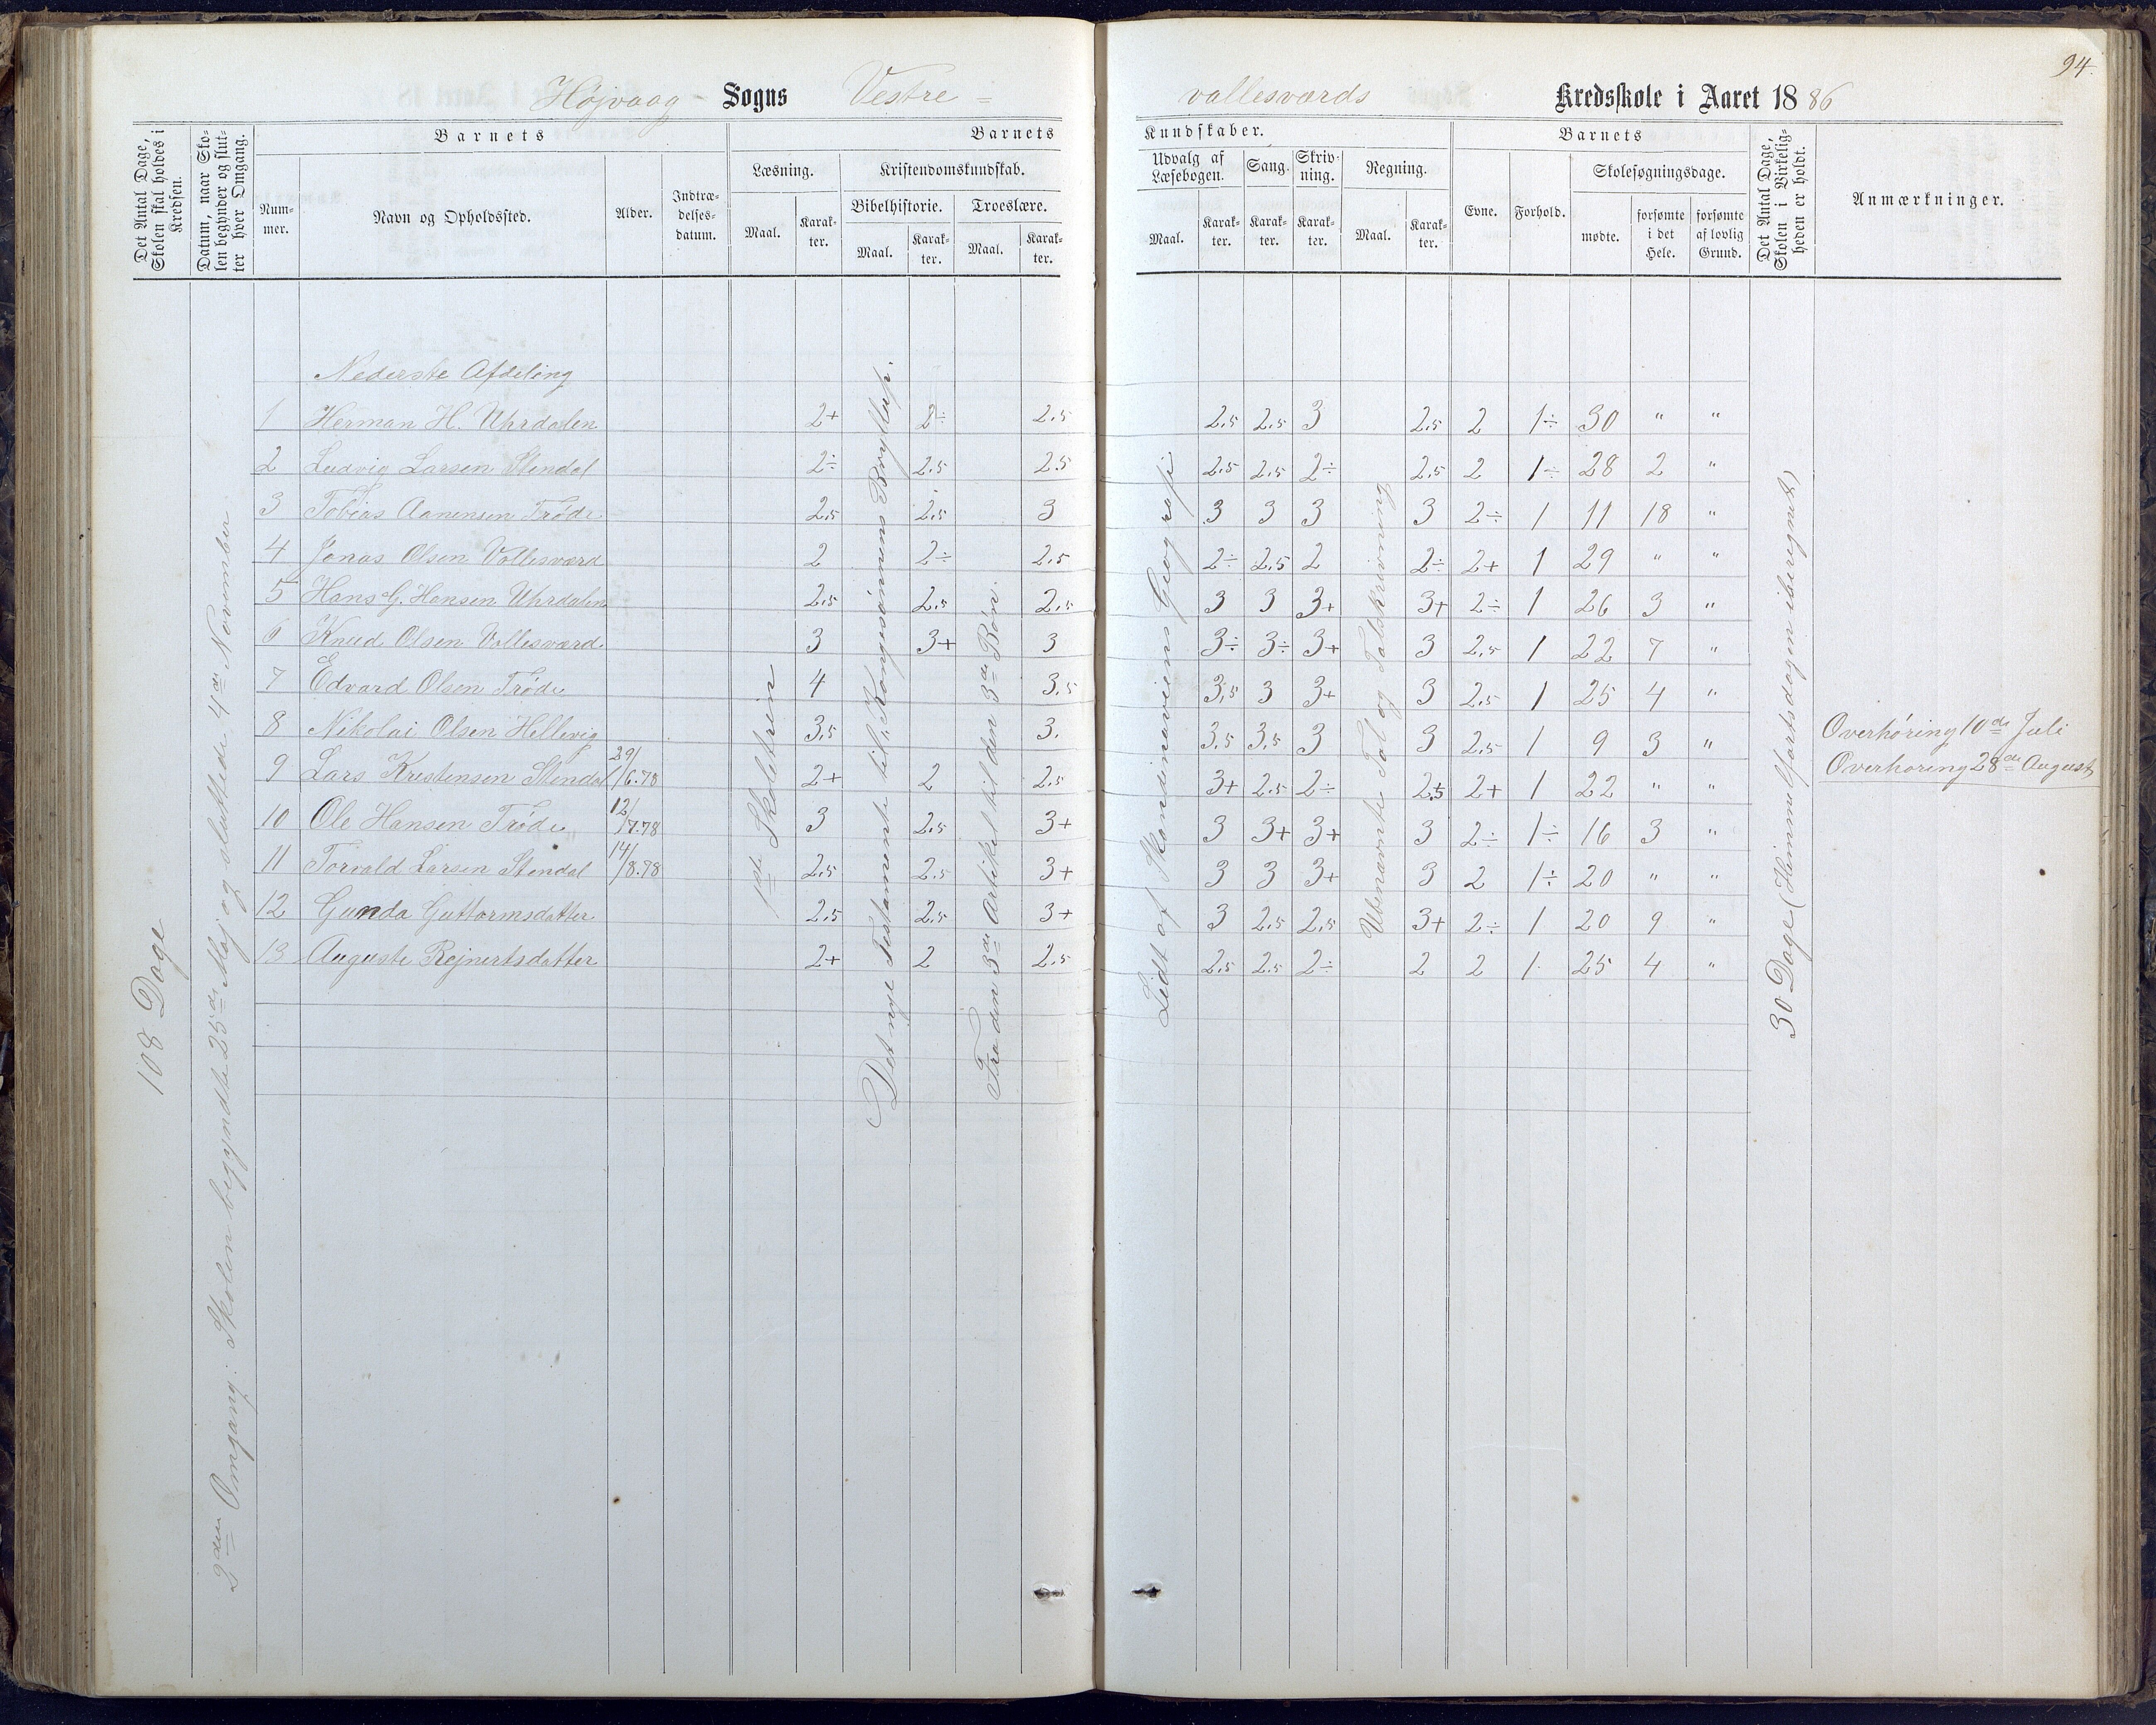 94.
Højvaag - Sogns Vestre =
vallesværds Kredsskole i Aaret 1886
Det Antal Dage, Skolen skal holdes i Kredsen.
Datum, naar Skolen begynder og slutter hver Omgang.
Barnets
Nummer.
Navn og Opholdssted.
Alder.
Indtrædelsesdatum.
Barnets
Læsning.
Maal.
Karakter.
Kristendomskundskab.
Bibelhistorie.
Maal.
Karakter.
Troeslære.
Maal.
Karakter.
Kundskaber.
Udvalg af Læsebogen.
Maal.
Karakter.
Sang.
Karakter.
Skrivning.
Karakter.
Regning.
Maal.
Karakter.
Barnets
Evne.
Forhold.
Skolesøgningsdage.
mødte.
forsømte i det Hele.
forsømte af lovlig Grund.
Det Antal Dage, Skolen i Virkeligheden er holdt.
Anmærkninger.
108 Dage
2den Omgang: Skolen begyndte 25de Maj og sluttede 4de November
1ste Skoletrin
Det nye Testamente til "Kongesønnens Bryllup".
Fra den 3de Artikel til den 3de Bøn.
Lidt af Skandinaviens Geografi
Ubenævnte Tal og Talskrivning
30 Dage (Himmelfartsdagen iberegnet)
Nederste Afdeling
1 Herman H. Uhrdalen 2+ 2÷ 2.5 2.5 2.5 3 2.5 2 1÷ 30 " "
2 Ludvig Larsen Stendal 2÷ 2.5 2.5 2.5 2.5 2÷ 2.5 2 1÷ 28 2 "
3 Tobias Aanensen Trøde 2.5 2.5 3 3 3 3 3 2÷ 1 11 18 "
4 Jonas Olsen Vallesværd 2 2÷ 2.5 2÷ 2.5 2 2÷ 2+ 1 29 " "
5 Hans G. Hansen Uhrdalen 2.5 2.5 2.5 3 3 3+ 3+ 2÷ 1 26 3 "
6 Knud Olsen Vallesværd. 3 3+ 3 3÷ 3÷ 3+ 3 2.5 1 22 7 "
7 Edvard Olsen Trøde 4 3.5 3.5 3 3+ 3 2.5 1 25 4 "
8 Nikolai Olsen Hellevig 3.5 3. 3.5 3.5 3 3 2.5 1 9 3 "
9 Lars Kristensen Stendal 29/6.78 2+ 2 2.5 3+ 2.5 2÷ 2.5 2+ 1 22 " "
10 Ole Hansen Trøde 12/7.78 3 2.5 3+ 3 3+ 3+ 3 2÷ 1÷ 16 3 "
11 Torvald Larsen Stendal 14/8.78 2.5 2.5 3+ 3 3 3+ 3 2 1÷ 20 " "
12 Gunda Guttormsdatter 2.5 2.5 3+ 3 2.5 2.5 3+ 2÷ 1 20 9 "
13 Auguste Rejnertsdatter 2+ 2 2.5 2.5 2.5 2÷ 2 2 1 25 4 "
Overhøring 10de Juli
Overhøring 28de August